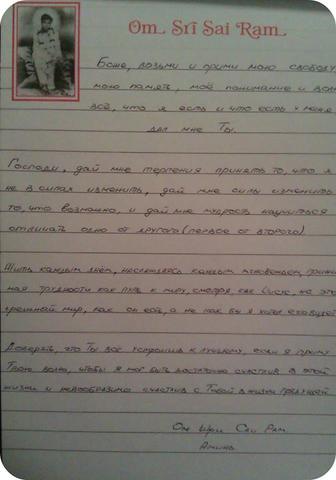 Om Sri Sai Ram
Боже, возьми и прими мою свободу,
мою память, моё понимание и волю
всё, что я есть и что есть у меня
дал мне Ты.
Господи, дай мне терпения принять то, что я
не в силах изменить, дай мне силы изменить
то, что возможно, и дай мне мудрость научиться
отличать одно от другого (первое от второго).
Жить каждым днём, наслаждаясь каждым мгновением, прини
мая трудности как путь к миру, смотря, как Иисус, на это
грешный мир, как он есть, а не как бы я хотел его видеть
Доверять, что Ты всё устроишь к лучшему, если я приму
Твою волю, чтобы я мог быть достаточно счастлив в этой
жизни и невообразимо счастлив с Тобой в жизни грядущей.
Ом Шри Саи Рам.
Аминь.